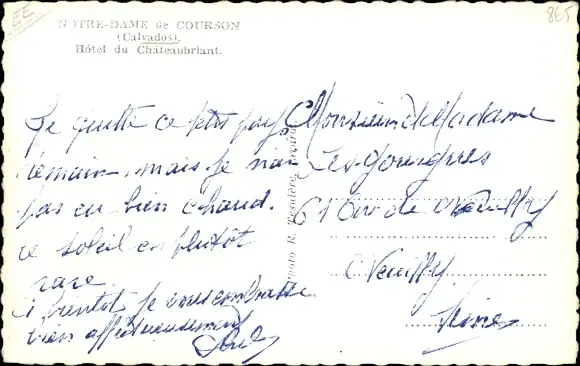 EE
865
NOTRE-DAME de COURSON
(Calvados).
Hôtel du Châteaubriant.
Je quitte ce petit pays
demain, mais je n'ai
pas eu bien chaud.
ce soleil est plutôt
rare
à bientôt je vous embrasse
bien affectueusement
Photo R.
Monsieur et Madame
61 Av de Neuilly
Neuilly
Seine